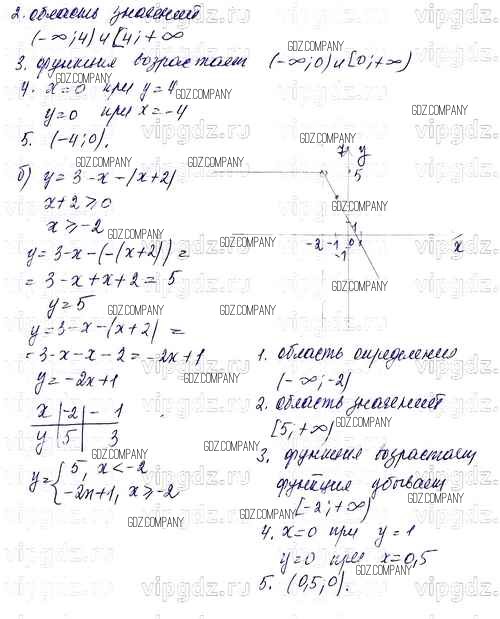 2. область значений
(-∞; 4) и [4; +∞
3. функция возрастает (-∞; 0) и [0; +∞)
4. x=0 при y=4
y=0 при x=-4
5. (-4; 0).
б) y=3-x-|x+2|
x+2≥0
x≥-2
y=3-x-(-(x+2))=
=3-x+x+2=5
y=5
y=3-x-(x+2)=
=3-x-x-2=-2x+1
y=-2x+1
x | -2 | -1
y | 5 | 3
y={5, x<-2
-2x+1, x≥-2
7 y
5
1
-2 -1 0 x
-1
1. область определения
(-∞; -2)
2. область значений
[5, +∞)
3. функция возрастает,
функция убывает
[-2; +∞)
4. x=0 при y=1
y=0 при x=0,5
5. (0,5; 0).
GDZ.COMPANY
vipgdz.ru